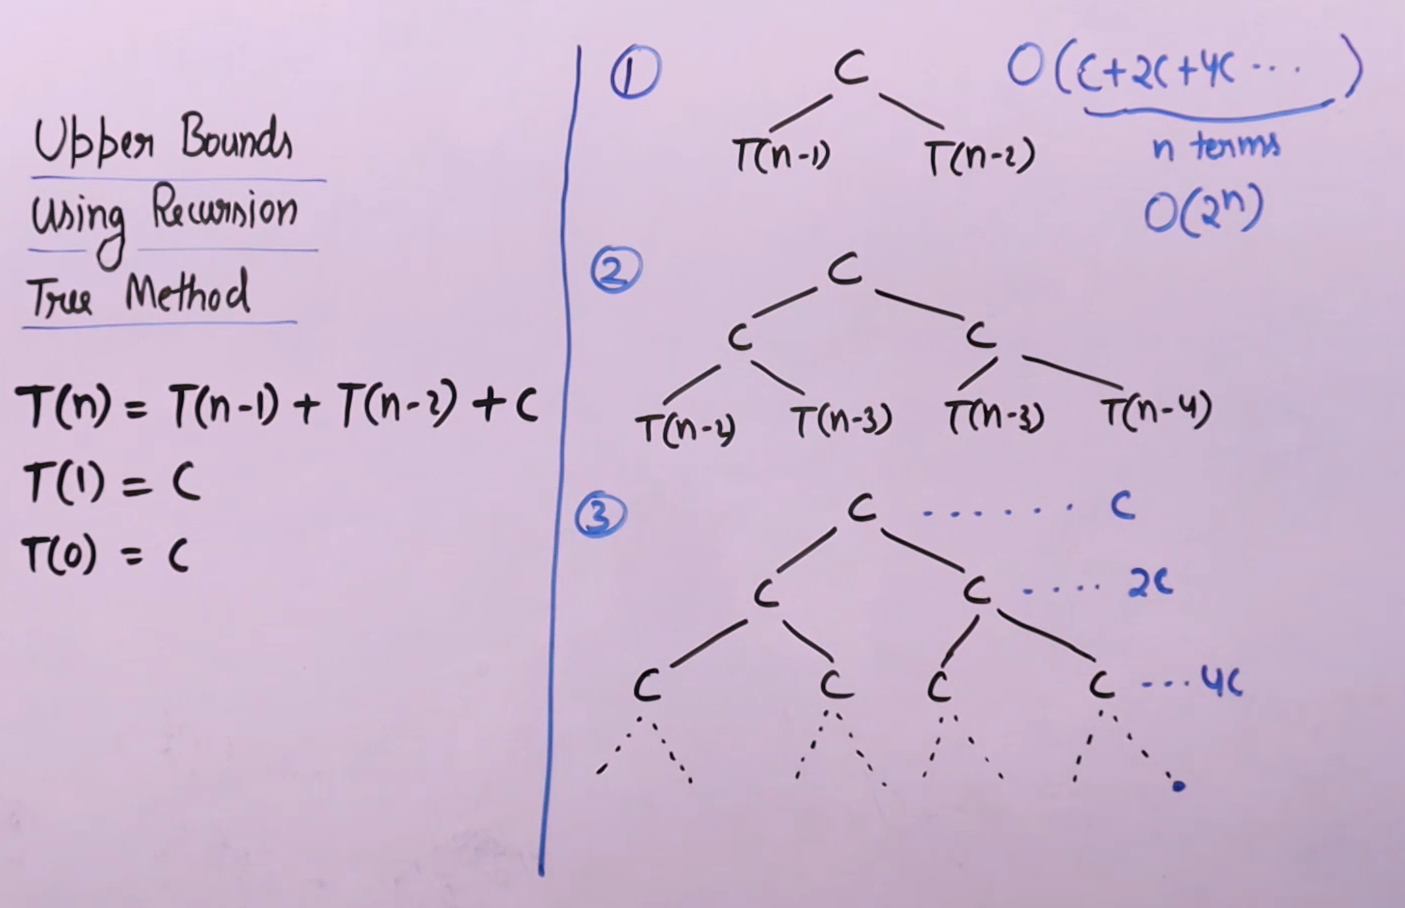 Upper Bounds
Using Recursion
Tree Method
T(n) = T(n-1) + T(n-2) + C
T(1) = C
T(0) = C
①
C
T(n-1) T(n-2)
O(C+2C+4C ... )
n terms
O(2ⁿ)
②
C
C C
T(n-2) T(n-3) T(n-3) T(n-4)
③
C ...... C
C C .... 2C
C C C C ... 4C